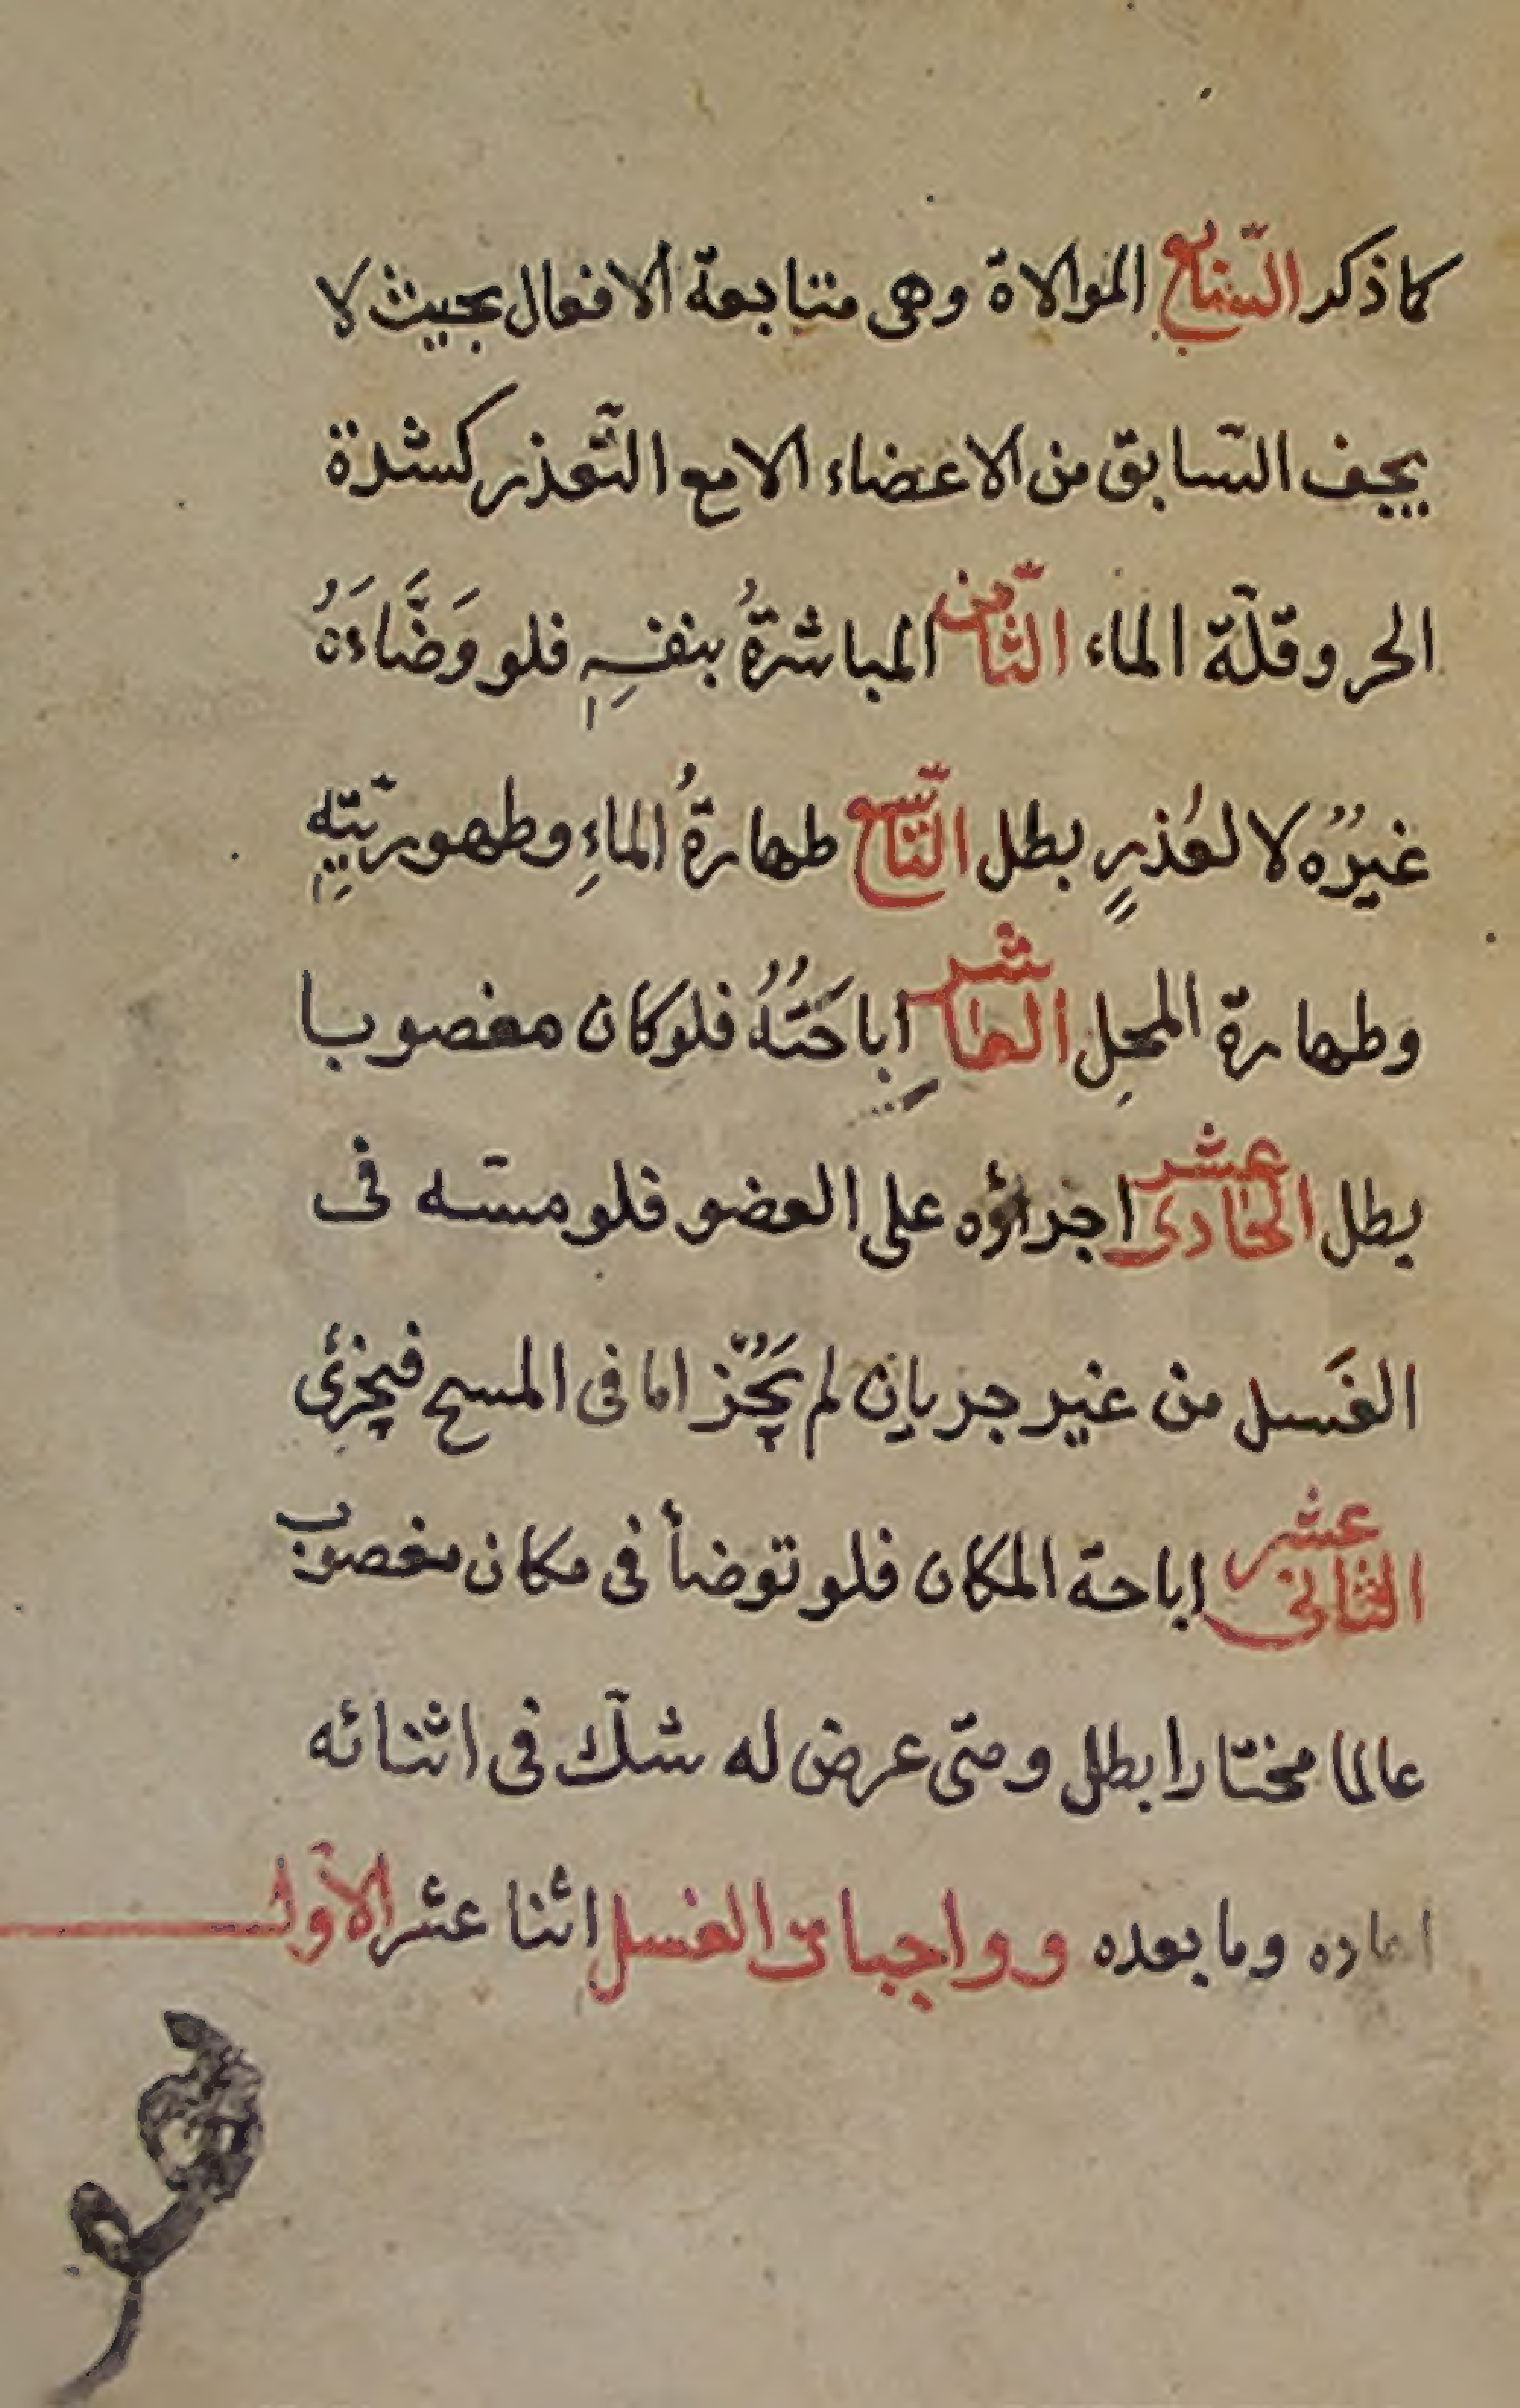 كما ذكر السّابع الموالاة وهى متابعة الافعال بحيث لا
يجف السّابق من الاعضاء الا مع التّعذر كشدة
الحر وقلّة الماء الثّامن المباشرةُ بنفسِهِ فلو وَضَّاءَهُ
غيرُه لا لعُذرٍ بطل التّاسع طهارةُ الماءِ وطهوريّتِهِ
وطهارة المحل العاشر اِباحَتُهُ فلو كان مغصوبا
بطل الحادى عشر اجراؤه على العضو فلو مسّه فى
الغَسل من غير جريان لم يَجُز اما فى المسح فيجزئ
الثانى عشر اباحة المكان فلو توضأ فى مكان مغصوب
عالما مختارا بطل ومتى عرض له شكّ فى اثنائه
اعاده وما بعده وواجبات الغسل اثنا عشر الاوّل